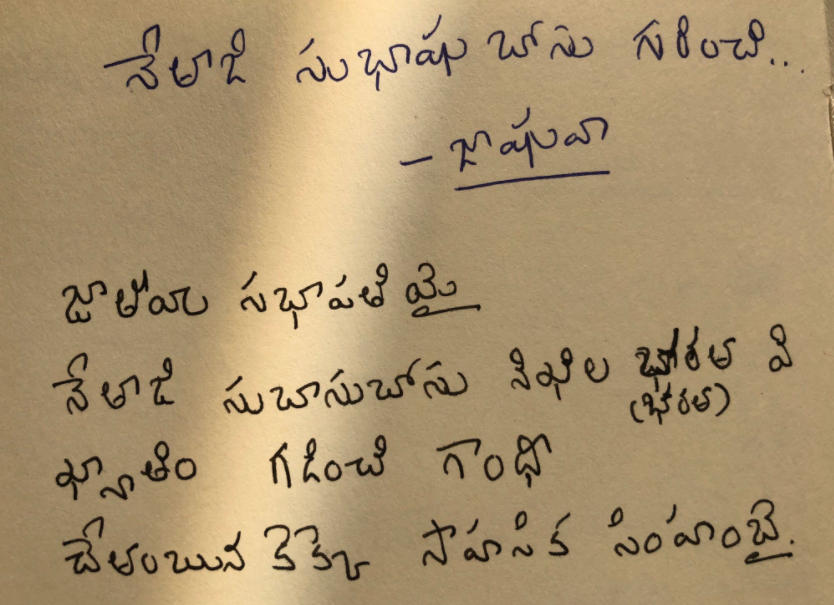 నేతాజి సుభాషు బోసు గురించి...
- జాషువా
జ్ఞాతీయ సభాపతియై
నేతాజి సుబాసుబోసు నిఖిల భారత వి
(భారత)
ఖ్యాతిం గడించి గాంధీ
చేతంబున కెక్కె సాహసిక సింహంబై.